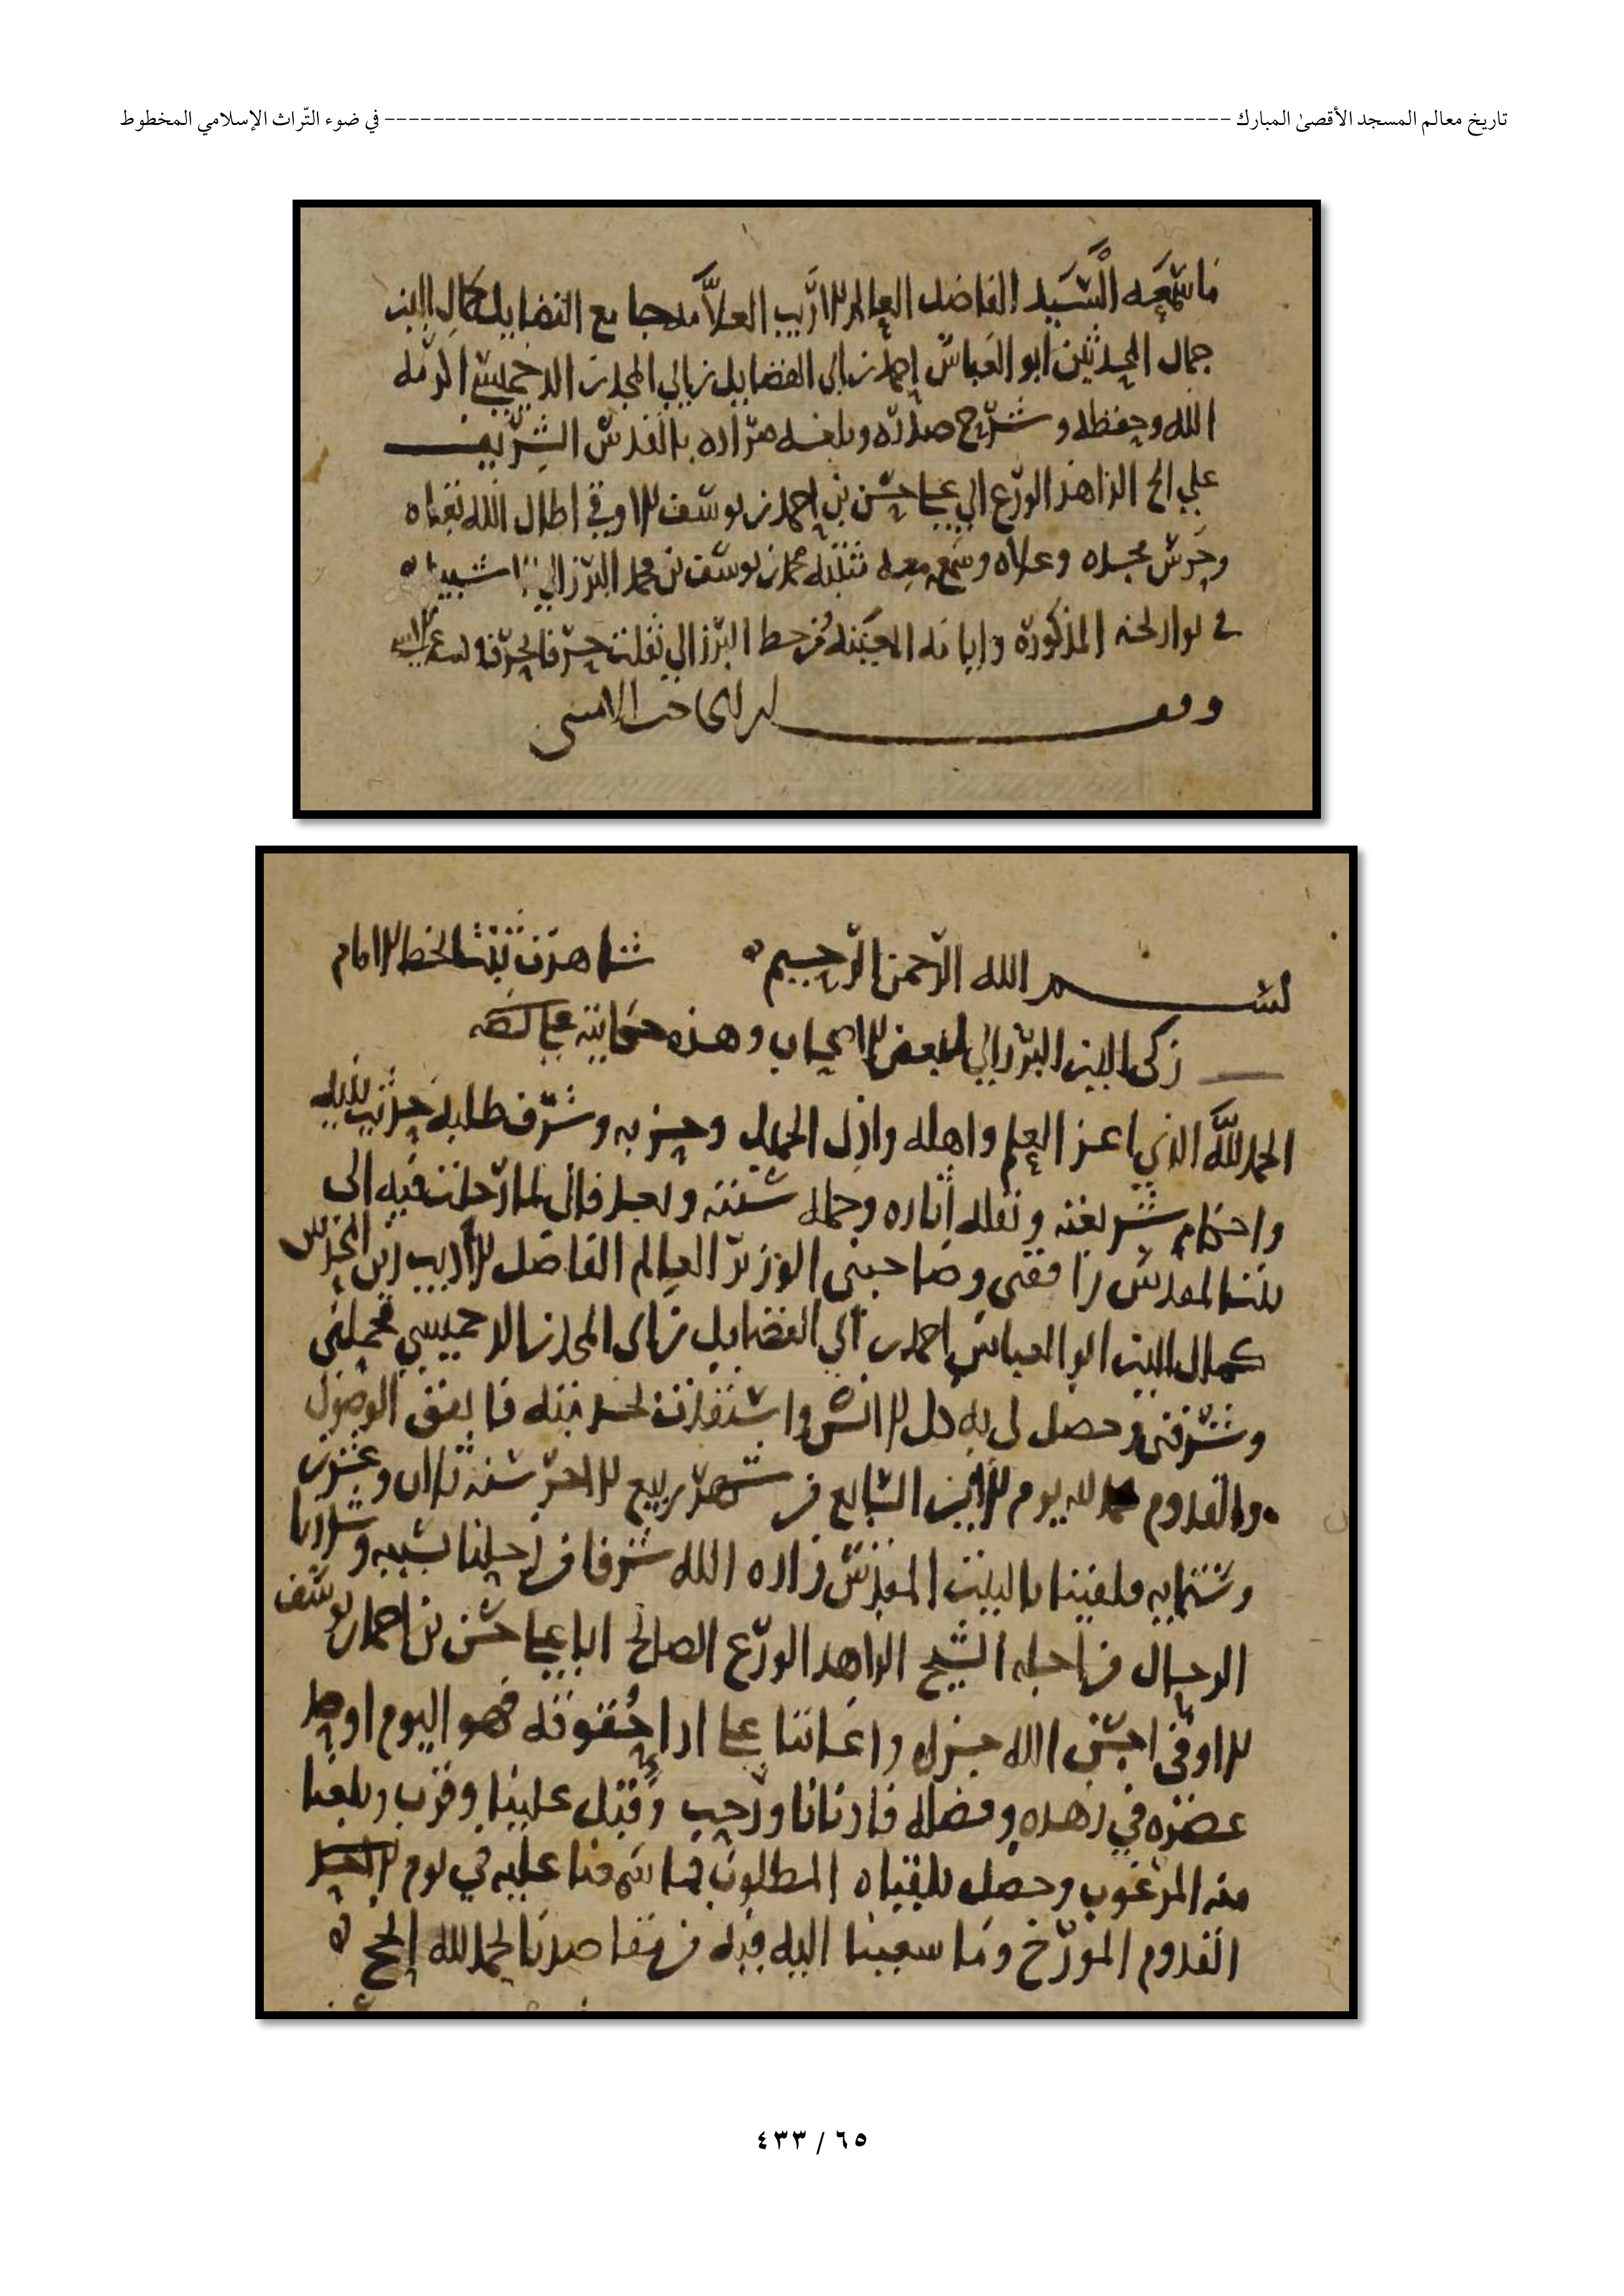 تاريخ معالم المسجد الأقصىٰ المبارك ---------------------------------------------------------------------- في ضوء التّراث الإسلامي المخطوط
ما سمعه السيد الفاضل العالم الاديب العلامه جامع الفضايل كمال الدين
جمال المحدثين ابو العباس احمد بن ابي الفضايل بن ابي المجد بن الدخميسي اكرمه
الله وحفظه وشرح صدره وبلغه مراده بالقدس الشريف
علي الزاهد الورع ابي علي حسن بن احمد بن يوسف الاوقي اطال الله بقاه
وحرس مجده وعلاه وسمع معه مثبته محمد بن يوسف بن محمد البرزالي
في المذكوره من خط البرزالي نقلت حرفا بحرف
بسم الله الرحمن الرحيم شاهدت ثبتا بخط الامام
زكي الدين البرزالي لبعض الاصحاب وهذه حكايته على نصه
الحمد لله الذي اعز العلم واهله واذل الجهل وحزبه وشرف طلبه حديث نبيه
واحكام شريعته ونقله اثاره وحمله سنته وبعد فاني لما رحلت فيه الى
بيت المقدس رافقني وصاحبني الوزير العالم الفاضل الاديب زين المحدثين
كمال الدين ابو العباس احمد بن ابي الفضايل بن ابي المجد بن الدخميسي فجملني
وشرفني وحصل لي به كل الانس واستفدت فاتفق الوصول
والقدوم يوم الاثنين السابع من شهر ربيع الاخر سنه ثمان وعشرين
وستمايه فلقينا بالبيت المقدس زاده الله شرفا من رحلنا بسببه وشددنا
الرحال من اجله الشيخ الزاهد الورع الصالح ابا علي حسن بن احمد بن يوسف
الاوقي احسن الله جزاه واعاننا على ادا حقوقه فهو اليوم اوحد
عصره في زهده وفضله فادنانا ورحب وقبل علينا وقرب وبلغنا
منه المرغوب وحصل بلقياه المطلوب فما سمعنا عليه في يوم
القدوم المورخ وما سعينا اليه فيه من مقاصدنا
٦٥ / ٤٣٣